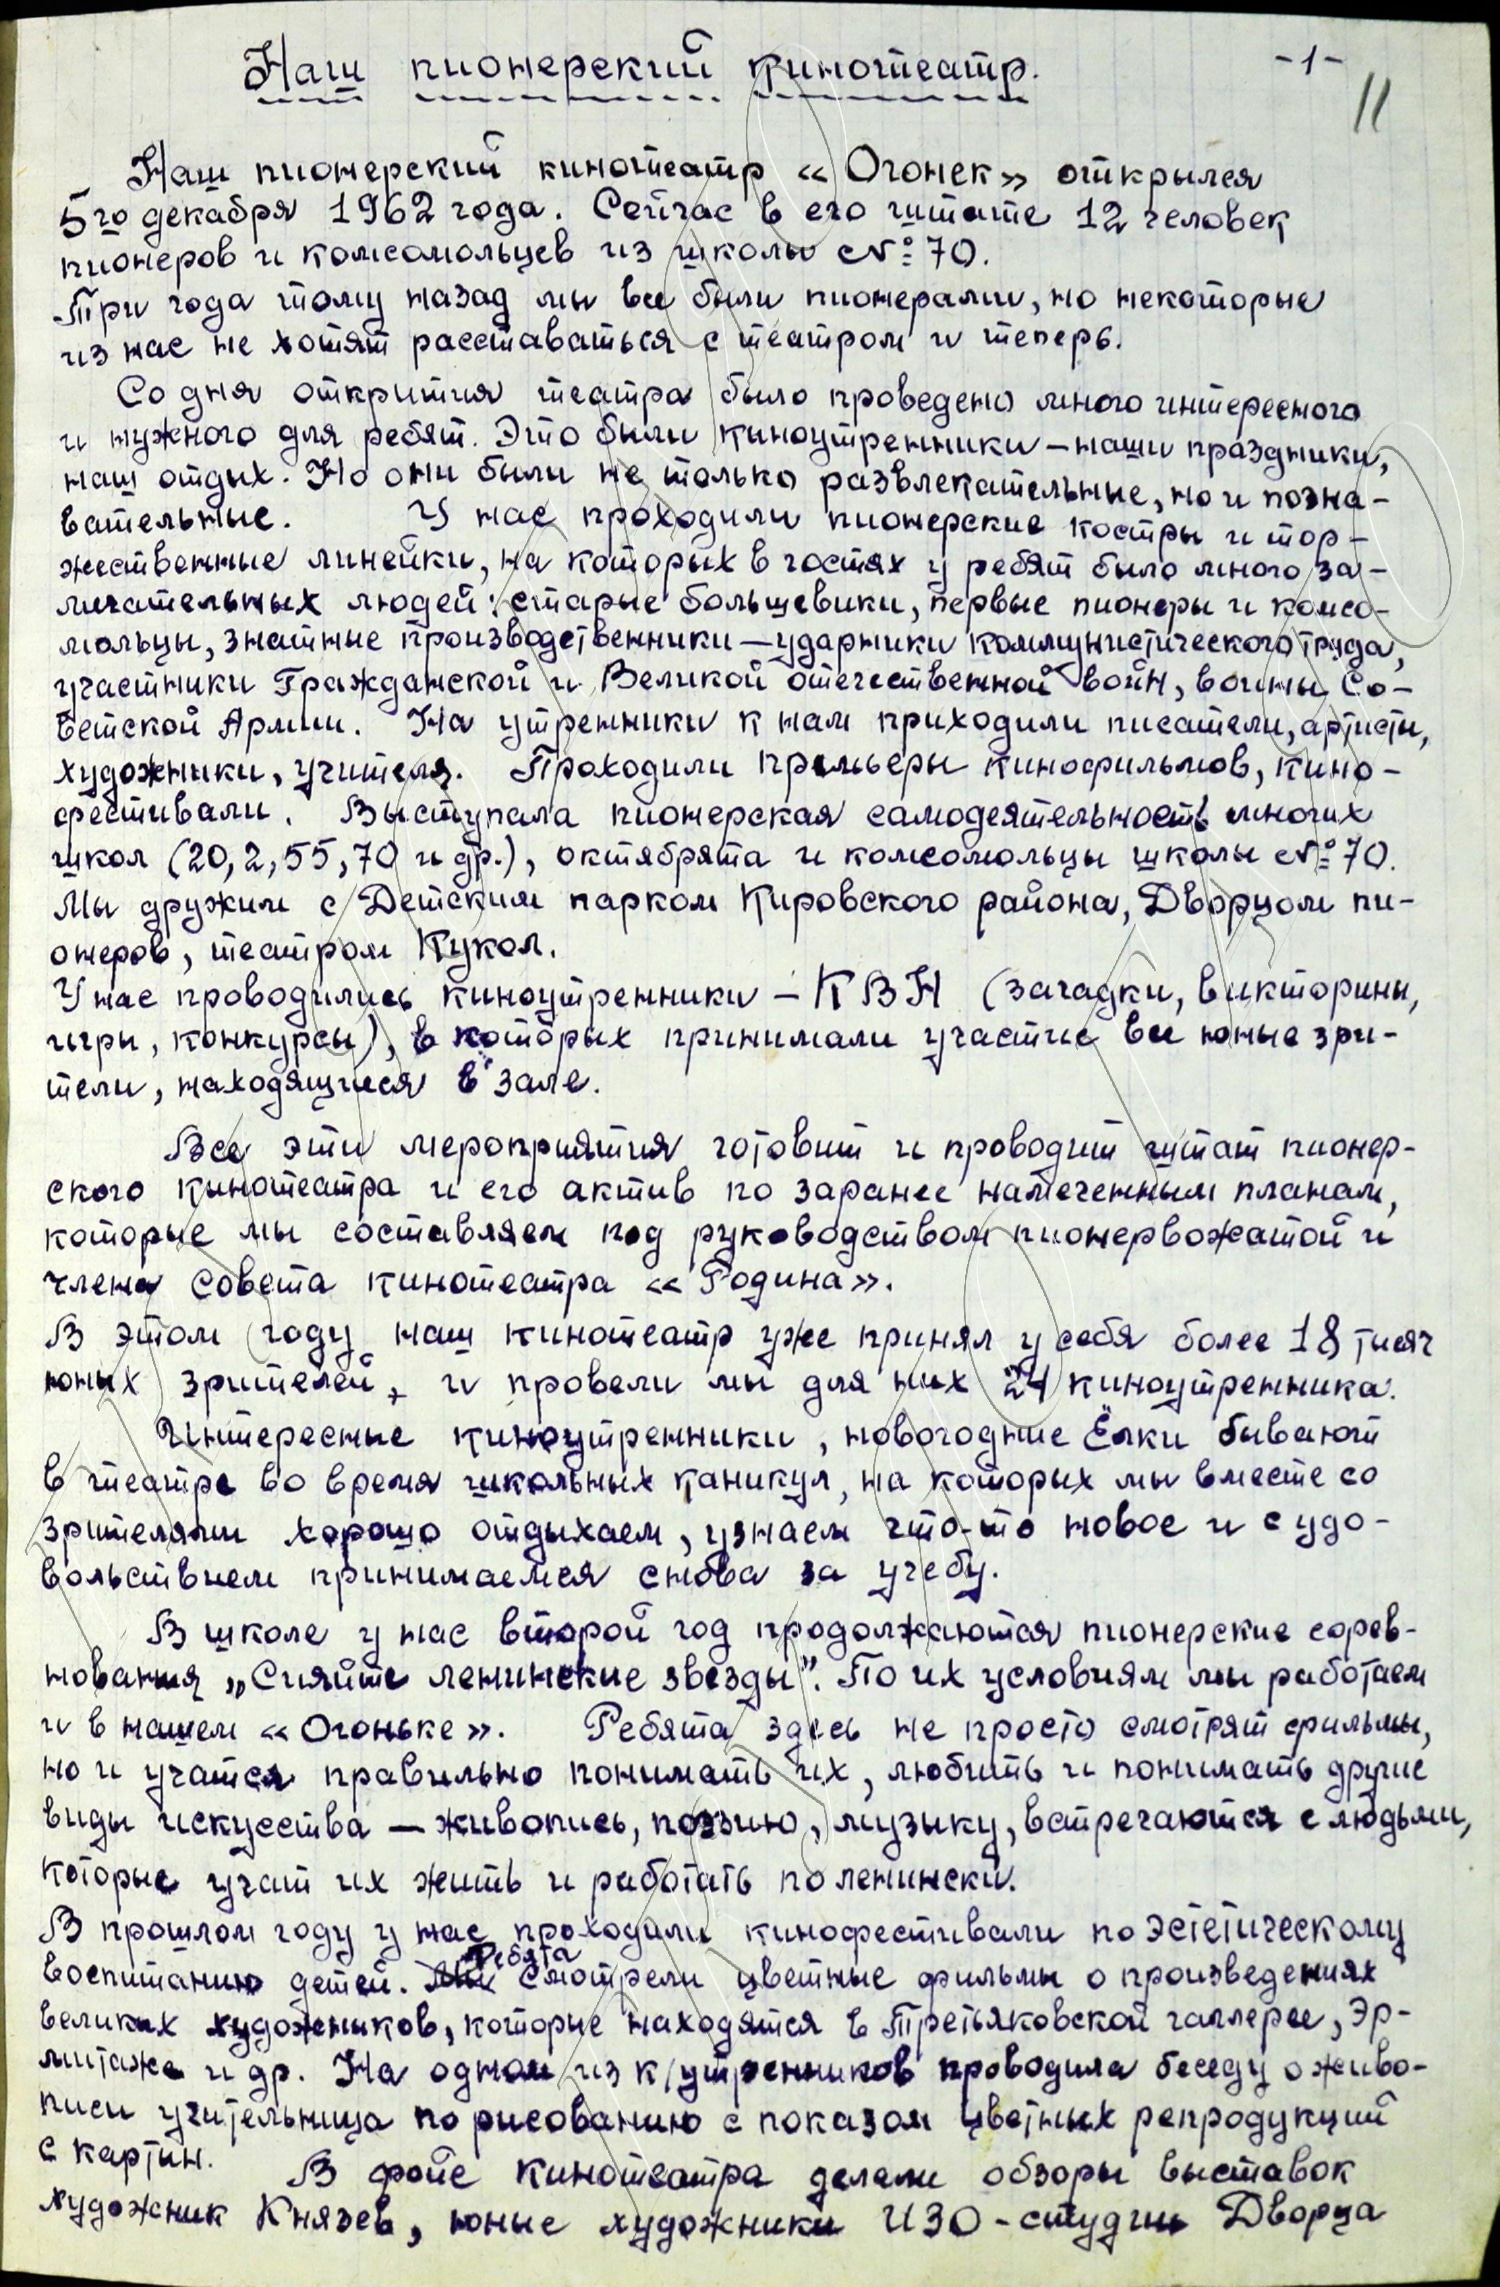 Наш пионерский кинотеатр.
-1-
11
Наш пионерский кинотеатр «Огонек» открылся
5го декабря 1962 года. Сейчас в его штате 12 человек
пионеров и комсомольцев из школы №70.
Три года тому назад мы все были пионерами, но некоторые
из нас не хотят расставаться с театром и теперь.
Со дня открытия театра было проведено много интересного
и нужного для ребят. Это были киноутренники – наши праздники,
наш отдых. Но они были не только развлекательные, но и позна-
вательные. У нас проходили пионерские костры и тор-
жественные линейки, на которых в гостях у ребят было много за-
мечательных людей: старые большевики, первые пионеры и комсо-
мольцы, знатные производственники – ударники коммунистического труда,
участники Гражданской и Великой отечественной войн, воины Со-
ветской Армии. На утренники к нам приходили писатели, артисты,
художники, учителя. Проходили премьеры кинофильмов, кино-
фестивали. Выступала пионерская самодеятельность многих
школ (20, 2, 55, 70 и др.), октябрята и комсомольцы школы №70.
Мы дружим с Детским парком Кировского района, Дворцом пи-
онеров, театром Кукол.
У нас проводились киноутренники – КВН (загадки, викторины,
игры, конкурсы), в которых принимали участие все юные зри-
тели, находящиеся в зале.
Все эти мероприятия готовит и проводит штат пионер-
ского кинотеатра и его актив по заранее намеченным планам,
которые мы составляем под руководством пионервожатой и
члена совета кинотеатра «Родина».
В этом году наш кинотеатр уже принял у себя более 18 тысяч
юных зрителей, и провели мы для них 24 киноутренника.
Интересные киноутренники, новогодние Ёлки бывают
в театре во время школьных каникул, на которых мы вместе со
зрителями хорошо отдыхаем, узнаем что-то новое и с удо-
вольствием принимаемся снова за учебу.
В школе у нас второй год продолжаются пионерские сорев-
нования „Сияйте ленинские звезды”. По их условиям мы работаем
и в нашем «Огоньке». Ребята здесь не просто смотрят фильмы,
но и учатся правильно понимать их, любить и понимать другие
виды искусства – живопись, поэзию, музыку, встречаются с людьми,
которые учат их жить и работать по ленински.
В прошлом году у нас проходили кинофестивали по эстетическому
воспитанию детей. Ребята смотрели цветные фильмы о произведениях
великих художников, которые находятся в Третьяковской галлерее, Эр-
митаже и др. На одном из к/утренников проводила беседу о живо-
писи учительница по рисованию с показом цветных репродукций
с картин. В фойе кинотеатра делали обзоры выставок
художник Князев, юные художники ИЗО-студии Дворца